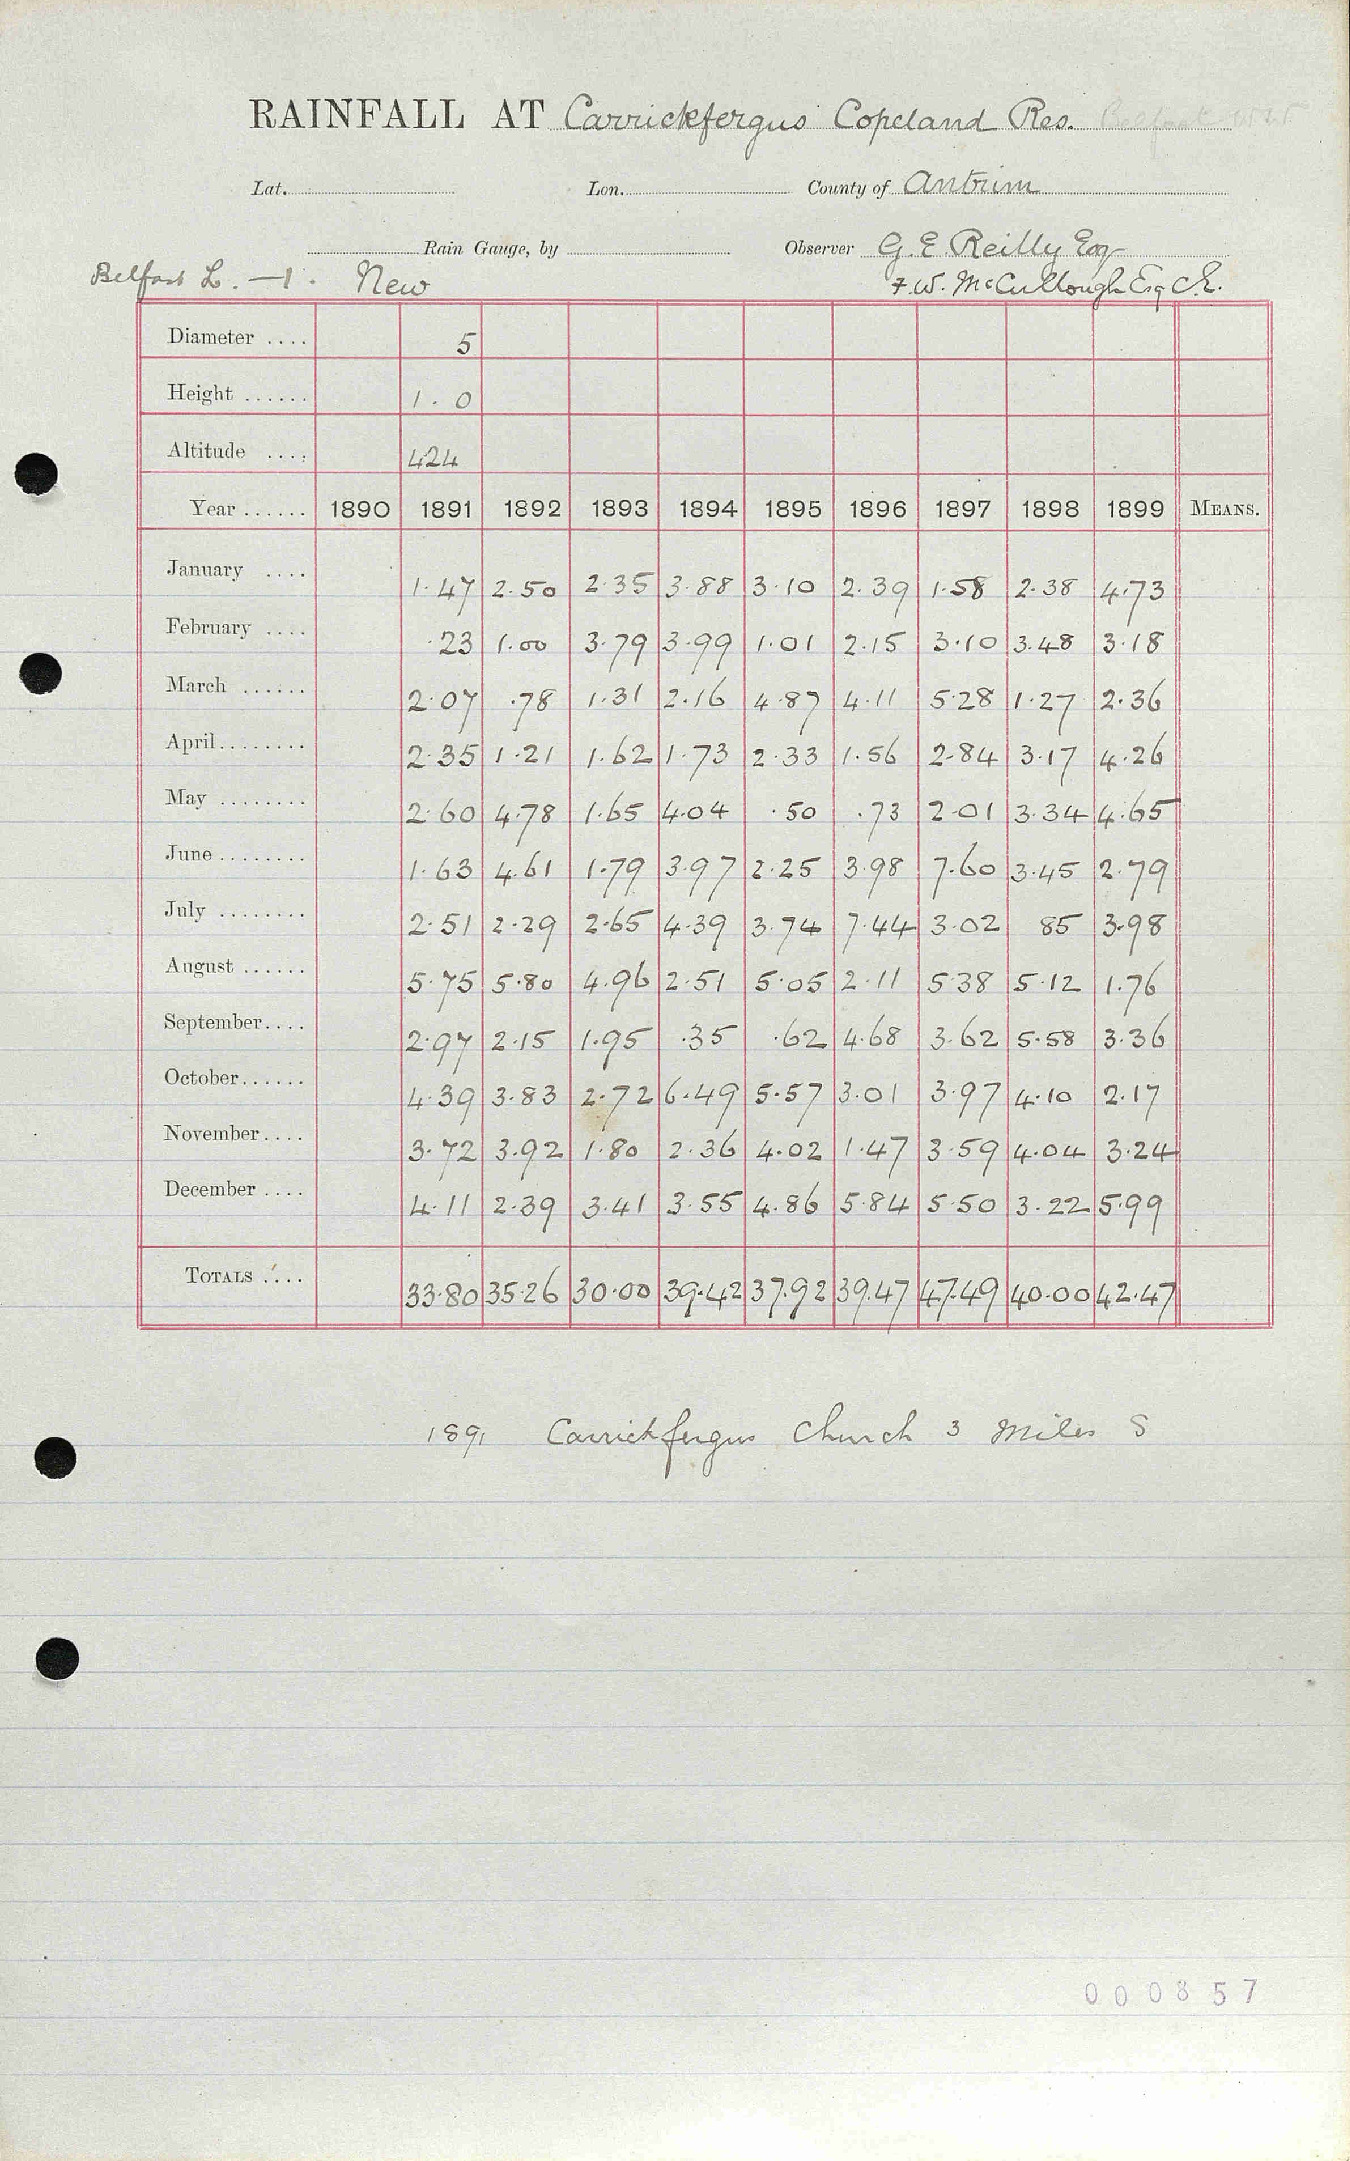 RAINFALL AT Carrickfergus Copeland Res. Belfast
Lat. Lon. County of Antrim
Rain Gauge, by Observer G. E Reilly Esq
Belfast L. —1. New F. W. McCullough Esq C.E.
Diameter .... 5
Height ...... 1. 0
Altitude .... 424
Year ...... 1890 1891 1892 1893 1894 1895 1896 1897 1898 1899 MEANS.
January .... 1.47 2.50 2.35 3.88 3.10 2.39 1.58 2.38 4.73
February .... .23 1.00 3.79 3.99 1.01 2.15 3.10 3.48 3.18
March ...... 2.07 .78 1.31 2.16 4.87 4.11 5.28 1.27 2.36
April........ 2.35 1.21 1.62 1.73 2.33 1.56 2.84 3.17 4.26
May ........ 2.60 4.78 1.65 4.04 .50 .73 2.01 3.34 4.65
June ........ 1.63 4.61 1.79 3.97 2.25 3.98 7.60 3.45 2.79
July ........ 2.51 2.29 2.65 4.39 3.74 7.44 3.02 85 3.98
August ...... 5.75 5.80 4.96 2.51 5.05 2.11 5.38 5.12 1.76
September.... 2.97 2.15 1.95 .35 .62 4.68 3.62 5.58 3.36
October...... 4.39 3.83 2.72 6.49 5.57 3.01 3.97 4.10 2.17
November.... 3.72 3.92 1.80 2.36 4.02 1.47 3.59 4.04 3.24
December .... 4.11 2.39 3.41 3.55 4.86 5.84 5.50 3.22 5.99
TOTALS .... 33.80 35.26 30.00 39.42 37.92 39.47 47.49 40.00 42.47
1891 Carrickfergus Church 3 Miles S
000857